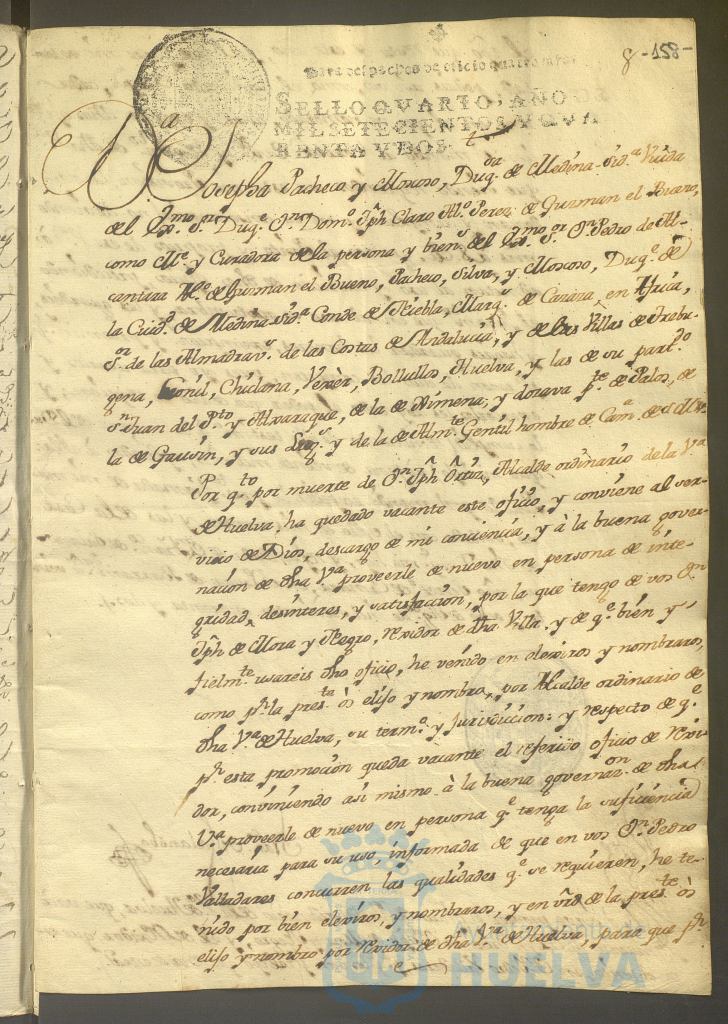 8 -158-
Para despachos de oficio quatro mrs.
SELLO QVARTO, AÑO DE
MIL SETECIENTOS Y QVA
RENTA Y DOS.
Da Josepha Pacheco y Moscoso, Duqsa de Medina Sida Viuda
del Exmo Sr Duqe Dn Domo Jph Claro Alo Perez de Guzman el Bueno,
como Me y Curadora de la persona y biens del Exmo Sor Dn Pedro de Al-
cantara Alo de Guzman el Bueno, Pacheco, Silva, y Moscoso, Duqe de
la Ciud de Medina Sida Conde de Niebla, Marqs de Cazaza, en Africa,
Sor de las Almadravs de las Costas de Andalucia, y de las Villas de Trabu-
gena, Conil, Chiclana, Vexèr, Bollullos, Huelva, y las de su partdo
Sn Juan del Pto y Alxaraque, de la de Ximena, y dozava pte de Palos, de
la de Gausin, y sus Lugs y de la de Almte Gentil hombre de Cama de S.M.
Por qto por muerte de Dn Jph Ortiz, Alcalde ordinario de la Va
de Huelva, ha quedado vacante este oficio, y conviene al ser-
vicio de Dios, descargo de mi conciencia, y à la buena gover-
nacion de dha Va proveerle de nuevo en persona de inte-
gridad, desinteres, y satisfacion, por la que tengo de vos Dn
Jph de Mora y Negro, Rexidor de dha Villa, y de qe bien y
fielmte usareis dho oficio, he venido en elexiros y nombraros,
como pr la preste òs elijo y nombro, por Alcalde ordinario de
dha Va de Huelva, su termo y jurisdiccion: y respecto de qe
pr esta promocion queda vacante el referido oficio de Rexi-
dor, conviniendo asi mismo à la buena governaon de dha
Va proveerle de nuevo en persona qe tenga la suficiencia
necesaria para su uso, informada de que en vos Dn Pedro
Valladares concurren las qualidades qe se requieren, he te-
nido por bien elexiros, y nombraros, y en vrd de la preste òs
elijo y nombro por Rexidor de dha Va de Huelva, para que pr
HUELVA